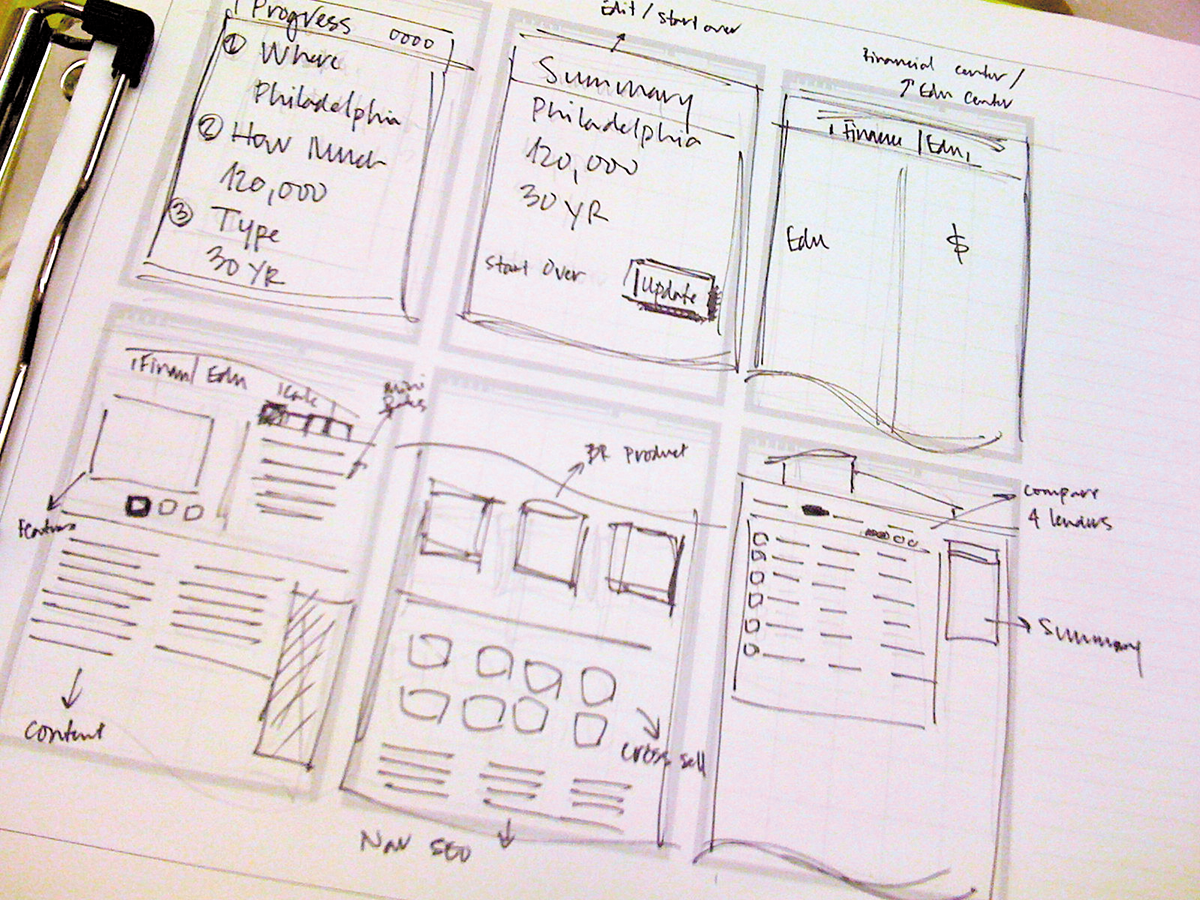 Progress
① Where
Philadelphia
② How Much
120,000
③ Type
30 YR
Edit / start over
Summary
Philadelphia
120,000
30 YR
Start Over
Update
Financial center /
Edu Center
Finance | Edu
Edu
$
Edu
mini
Content
Product
cross sell
Nav SEO
compare
4 lenders
Summary